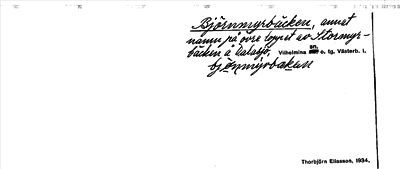 Björnmyrbäcken, annat
namn på övre loppet av Stormyr-
bäcken å Dalasjö, Vilhelmina sn. o. tg. Västerb. l.
Thorbjörn Eliasson, 1934.